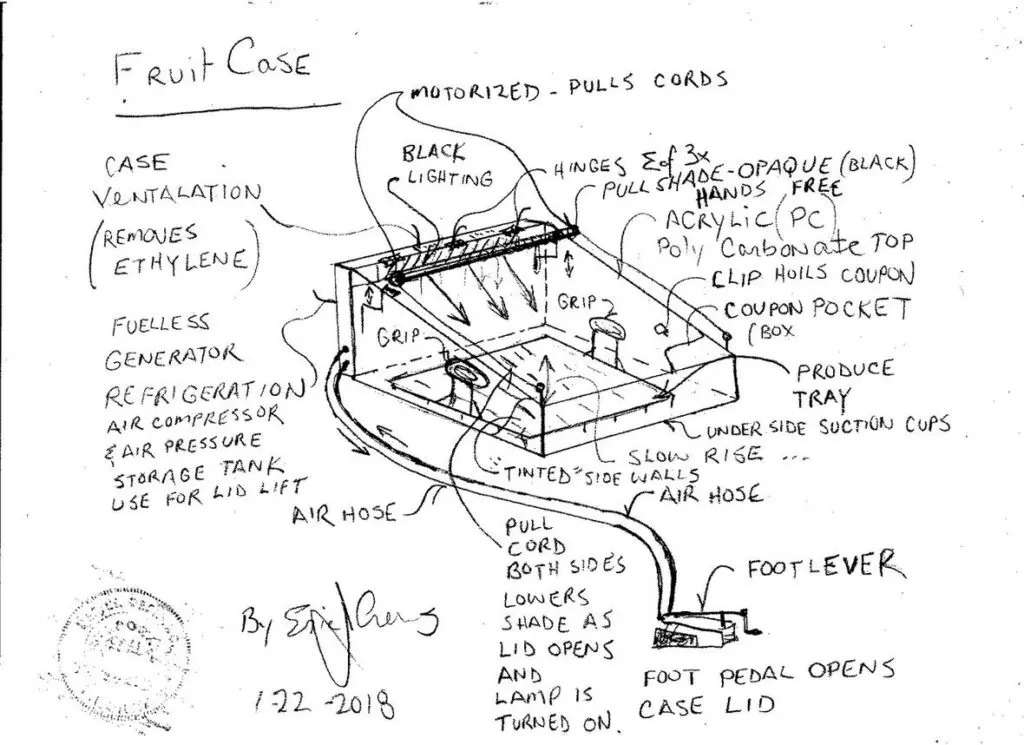 Fruit Case
MOTORIZED - PULLS CORDS
CASE
VENTALATION
(REMOVES
ETHYLENE)
BLACK
LIGHTING
HINGES
3x
PULL SHADE-OPAQUE (BLACK)
HANDS FREE
ACRYLIC (PC)
Poly Carbonate TOP
CLIP HOILS COUPON
COUPON POCKET
(BOX
GRIP
GRIP
FUELLESS
GENERATOR
REFRIGERATION
AIR COMPRESSOR
& AIR PRESSURE
STORAGE TANK
USE FOR LID LIFT
PRODUCE
TRAY
UNDER SIDE SUCTION CUPS
SLOW RISE ...
"TINTED" SIDE WALLS
AIR HOSE
AIR HOSE
PULL
CORD
BOTH SIDES
LOWERS
SHADE AS
LID OPENS
AND
LAMP IS
TURNED ON.
FOOT LEVER
FOOT PEDAL OPENS
CASE LID
By
1-22-2018